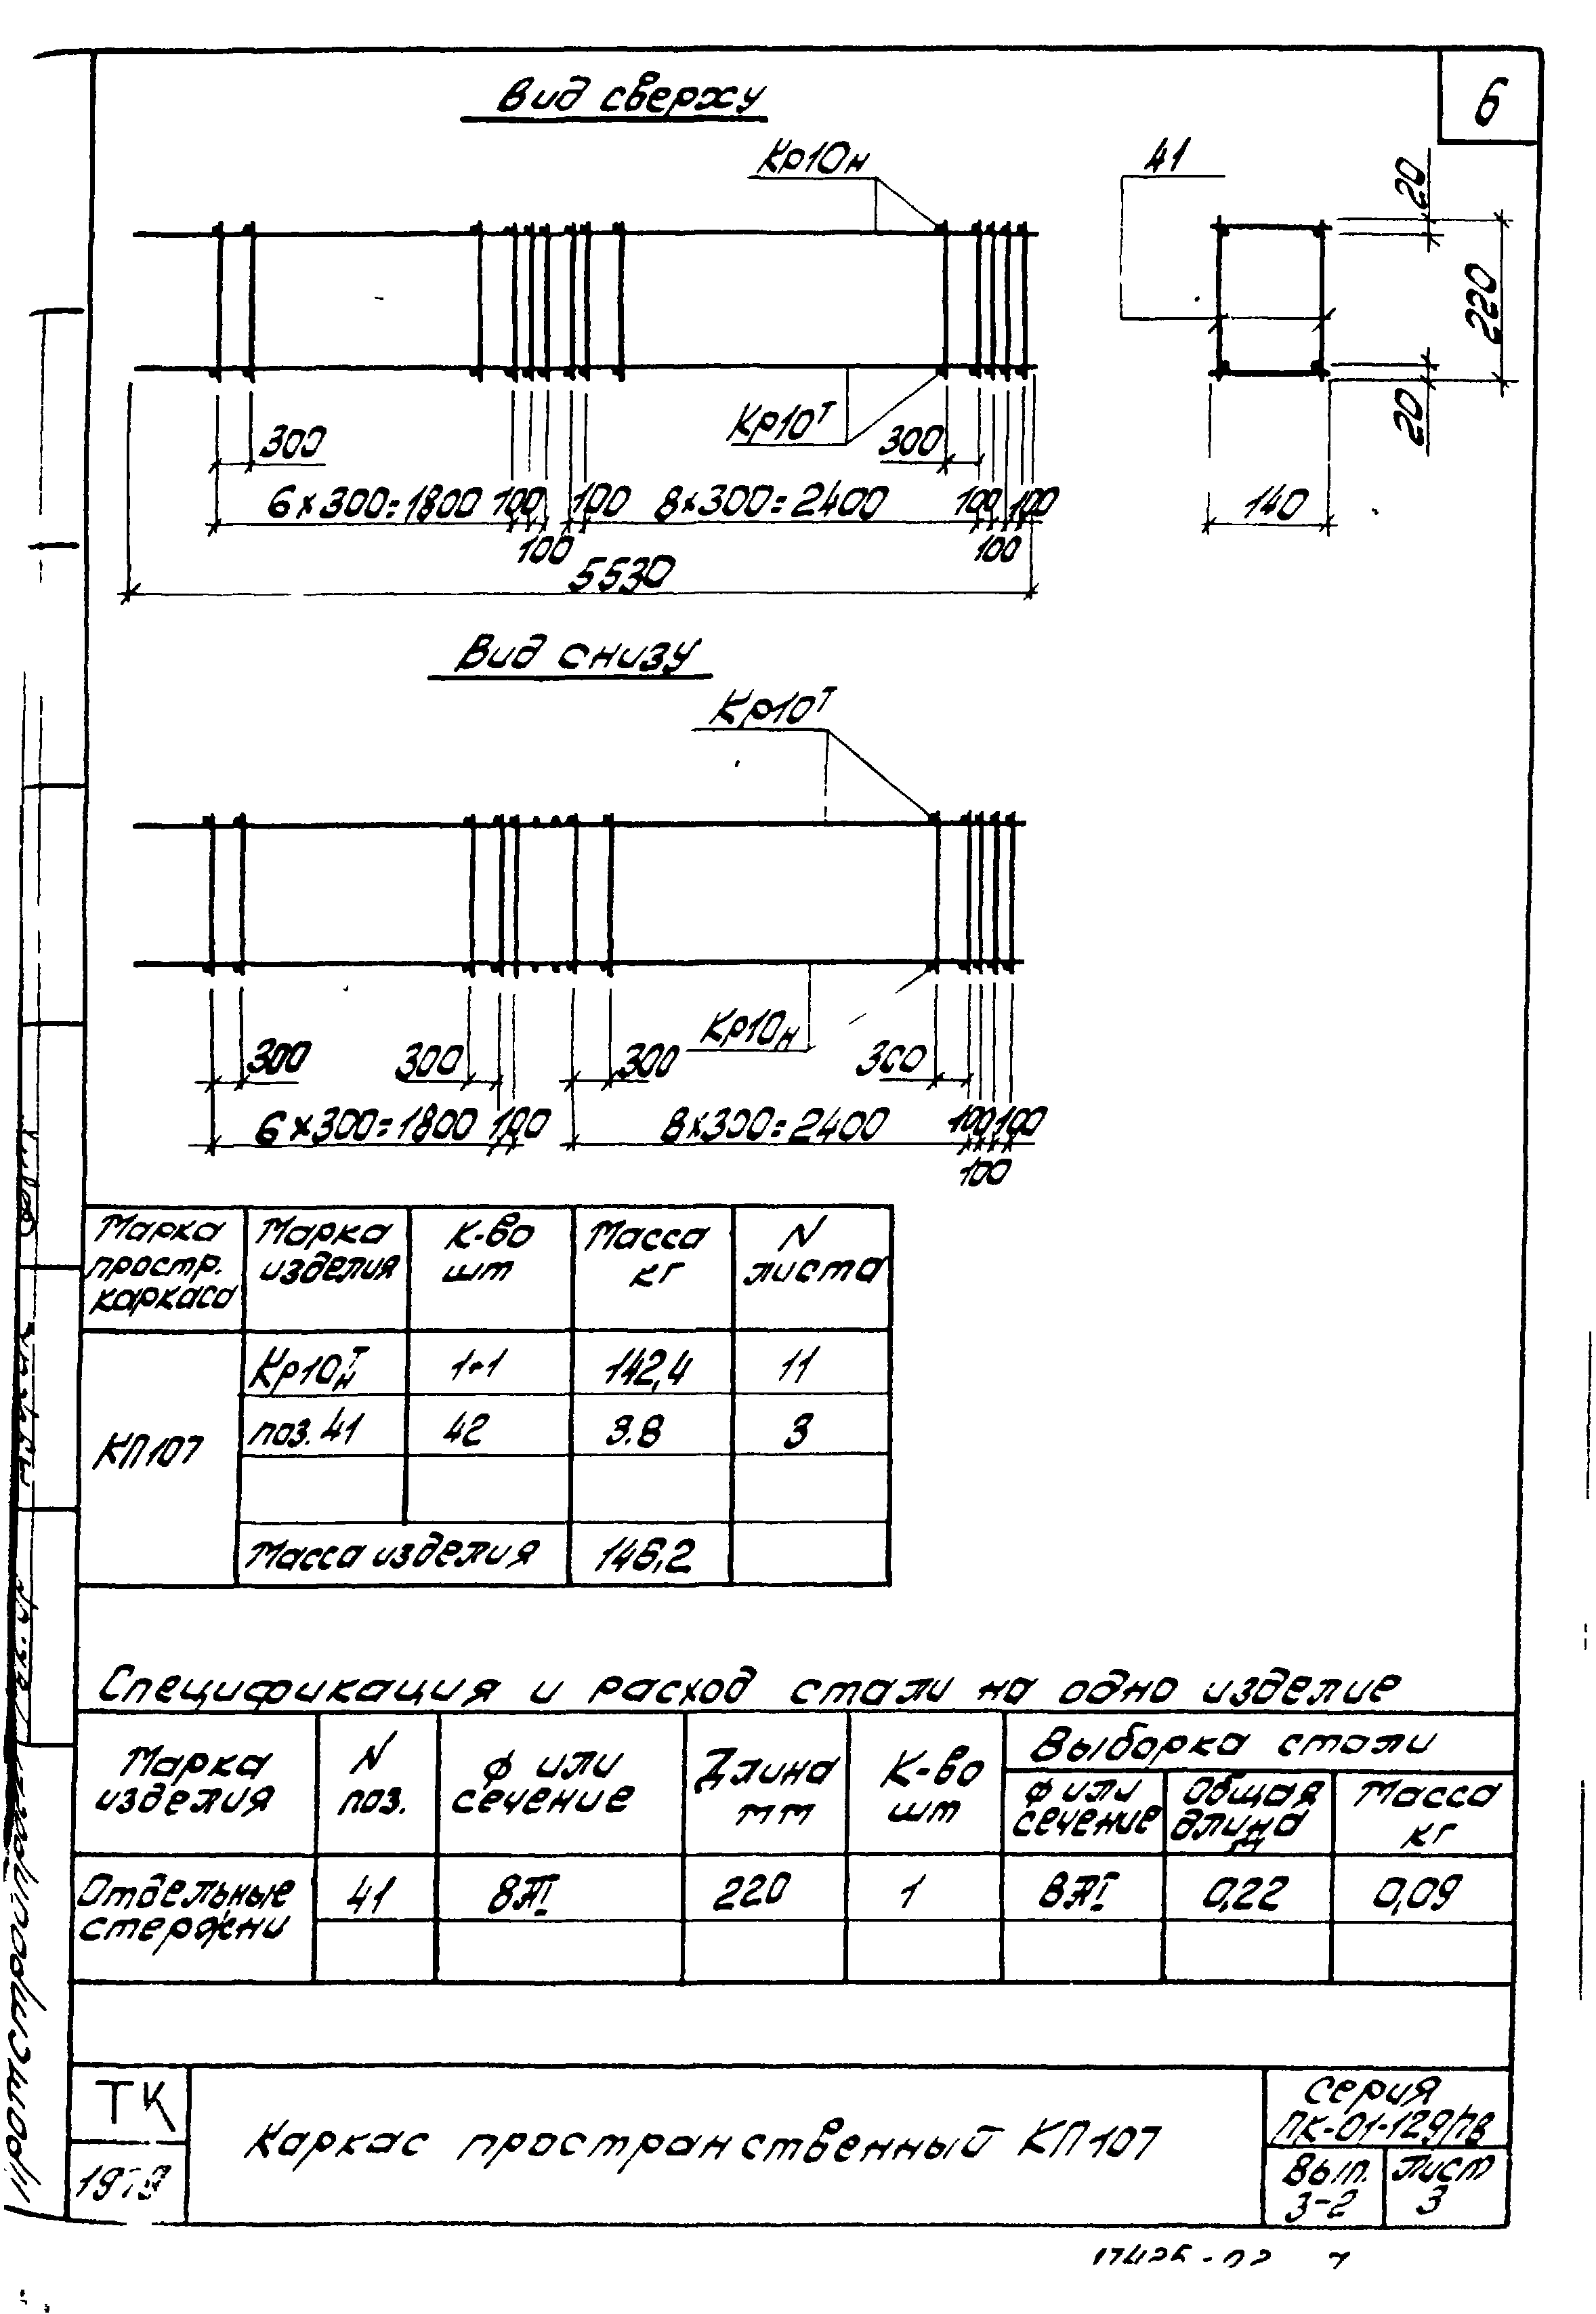 6
Вид сверху
Кр10н
41
20
220
20
140
Кр10т
300
300
6×300=1800 100 100 8×300=2400 100 100
100
100
5530
Вид снизу
Кр10т
Кр10н
300
300
300
300
6×300=1800 100
8×300=2400
100 100
100
Марка простр. каркаса
Марка изделия
К-во шт
Масса кг
N листа
КП107
Кр10т/н 1+1 142,4 11
поз. 41 42 3.8 3
Масса изделия 146,2
Спецификация и расход стали на одно изделие
Марка изделия
N поз.
ф или сечение
Длина мм
К-во шт
Выборка стали
ф или сечение
Общая длина м
Масса кг
Отдельные стержни
41 8АI 220 1 8АI 0,22 0,09
ТК
1979
Каркас пространственный КП107
Серия
ПК-01-129/78
Вып.
3-2
лист
3